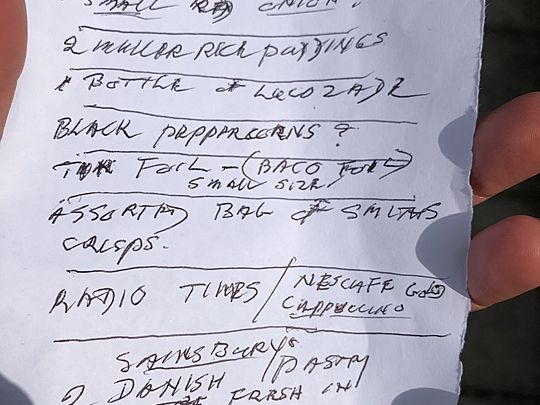 SMALL RED ONION?
2 MULLER RICE PUDDINGS
1 BOTTLE of LUCOZADE
BLACK PEPPERCORNS?
TIN FOIL - (BACO FOIL)
SMALL SIZE
ASSORTED BAG of SMITHS
CRISPS.
RADIO TIMES / NESCAFE GOLD
CAPPUCCINO
SAINSBURYS
2 DANISH / PASTRY
FRESH IN